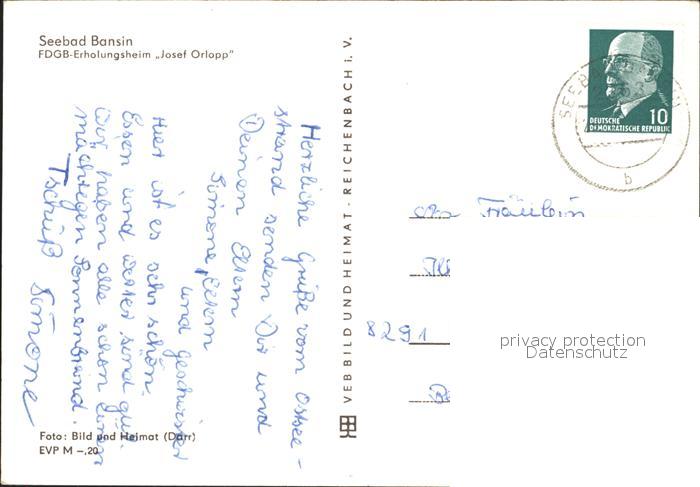 Seebad Bansin
FDGB-Erholungsheim „Josef Orlopp"
Herzliche Grüße vom Ostsee-
strand senden Dir und
Deinen Eltern
Simone, Eltern
und Geschwister
Hier ist es sehr schön.
Essen und Wetter sind gut.
Wir haben alle schon einen
mächtigen Sonnenbrand.
Tschüß Simone
Foto: Bild und Heimat (Darr)
EVP M –,20
VEB BILD UND HEIMAT · REICHENBACH i. V.
10
DEUTSCHE
DEMOKRATISCHE REPUBLIK
SEEB
b
an Fräulein
8291
privacy protection
Datenschutz